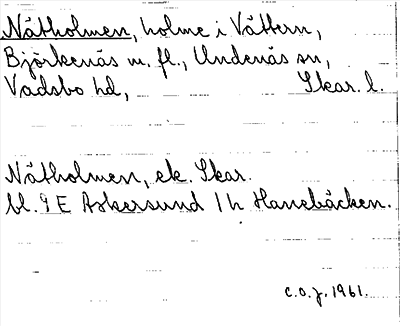 Nätholmen, holme i Vättern,
Björkenäs m. fl., Undenäs sn,
Vadsbo hd, Skar. l.
Nätholmen, ek. Skar.
bl. 9 E Askersund 1 h Hanebäcken.
C.O.J. 1961.